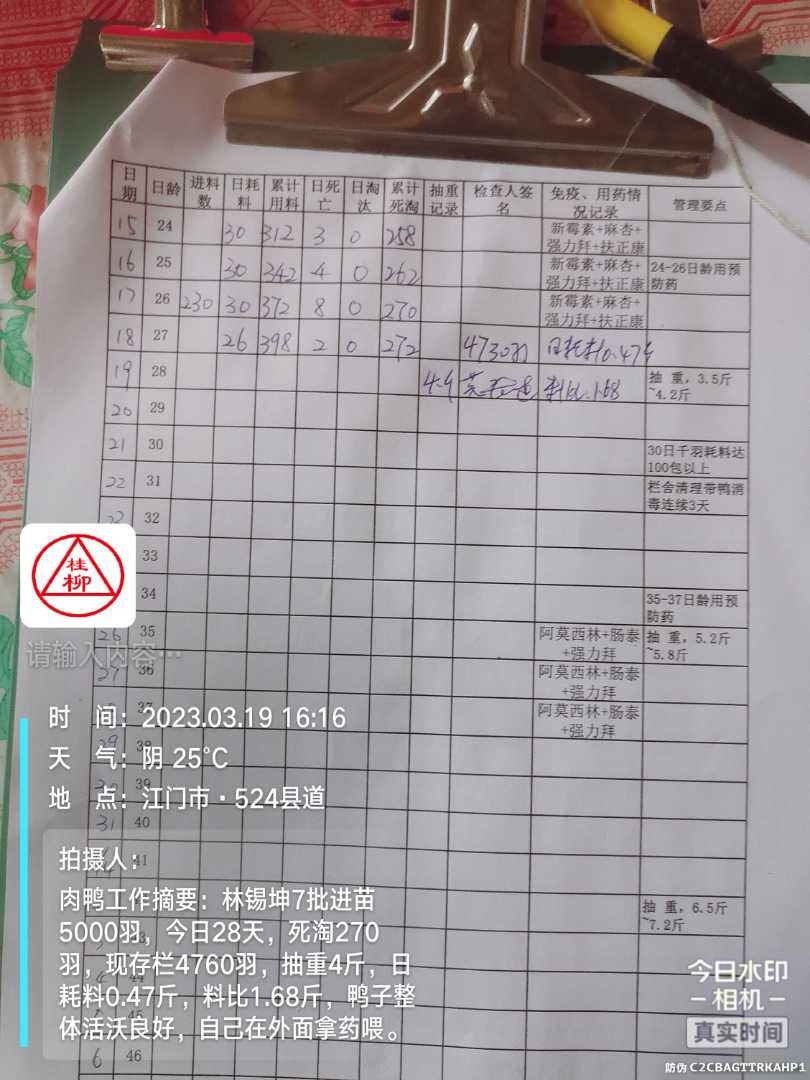 日期 日龄 进料数 日耗料 累计用料 日死亡 日淘汰 累计死淘 抽重记录 检查人签名 免疫、用药情况记录 管理要点
15 24 30 312 3 0 258 新霉素+麻杏+强力拜+扶正康
16 25 30 342 4 0 262 新霉素+麻杏+强力拜+扶正康 24-26日龄用预防药
17 26 230 30 372 8 0 270 新霉素+麻杏+强力拜+扶正康
18 27 26 398 2 0 272 4730羽 日耗料0.47斤
19 28 料比1.68 抽 重，3.5斤~4.2斤
20 29
21 30 30日千羽耗料达100包以上
22 31 栏舍清理带鸭消毒连续3天
32
33
34 35-37日龄用预防药
26 35 阿莫西林+肠泰+强力拜 抽 重，5.2斤~5.8斤
27 36 阿莫西林+肠泰+强力拜
37 阿莫西林+肠泰+强力拜
29 38
39
31 40
41
抽 重，6.5斤~7.2斤
4 44
45
6 46
桂柳
请输入内容…
时 间：2023.03.19 16:16
天 气：阴 25℃
地 点：江门市·524县道
拍摄人：
肉鸭工作摘要：林锡坤7批进苗
5000羽，今日28天，死淘270
羽，现存栏4760羽，抽重4斤，日
耗料0.47斤，料比1.68斤，鸭子整
体活沃良好，自己在外面拿药喂。
今日水印
-相机-
真实时间
防伪 C2CBAGTTRKAHP1